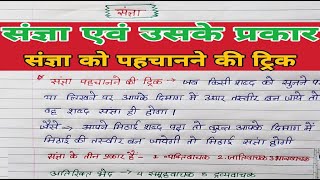 संज्ञा
संज्ञा एवं उसके प्रकार
संज्ञा को पहचानने की ट्रिक
संज्ञा पहचानने की ट्रिक → जब किसी शब्द को सुनने पर
या लिखने पर आपके दिमाग में अगर तस्वीर बन जाये तो
वह शब्द संज्ञा ही होगा।
जैसे → आपने मिठाई शब्द पढ़ा तो तुरन्त आपके दिमाग में
मिठाई की तस्वीर बन जायेगी तो मिठाई संज्ञा होगी
संज्ञा के तीन प्रकार हैं - 1. व्यक्तिवाचक 2. जातिवाचक 3 भाववाचक
अतिरिक्त भेद → 4 समूहवाचक 5 द्रव्यवाचक